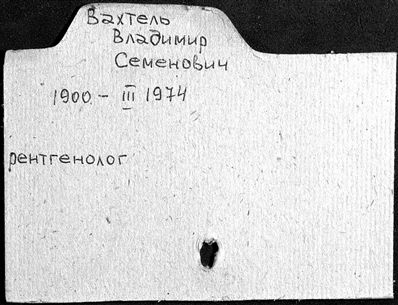 Вахтель
Владимир
Семенович
1900 - III 1974
рентгенолог